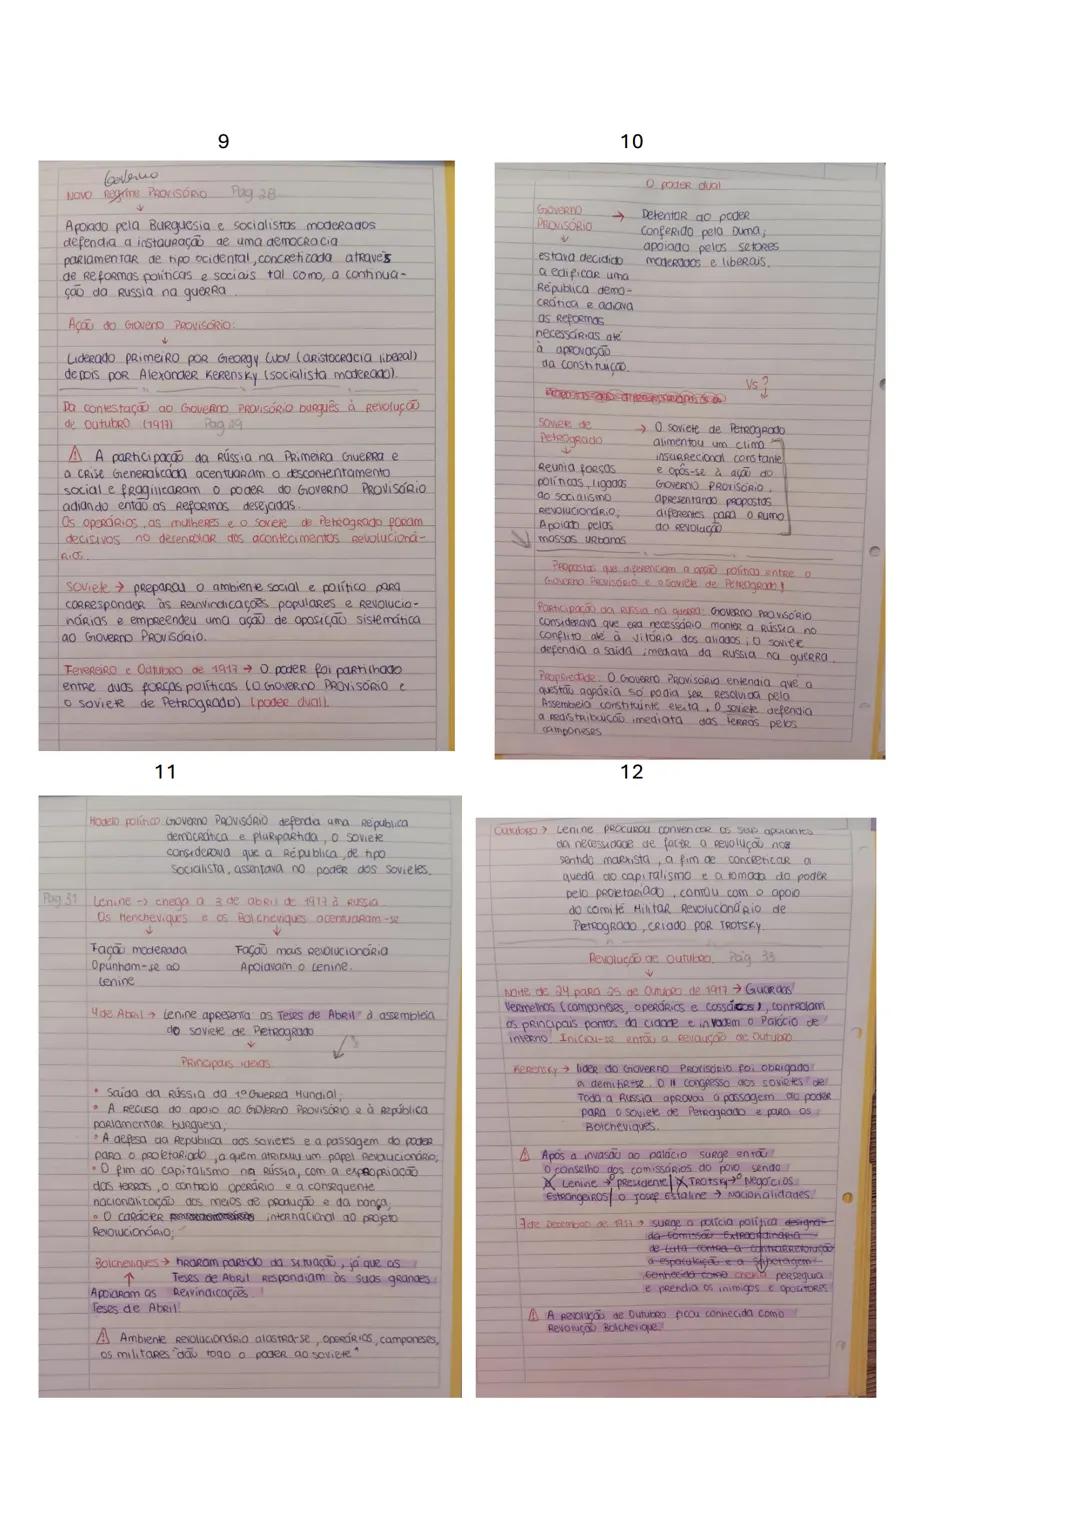 9
Governo
NOVO Regime PROVISÓRIO Pág 28
Apoiado pela Burguesia e socialistas moderados
defendia a instauração de uma democracia
parlamentar de tipo ocidental, concreticada através
de Reformas políticas e sociais tal como, a continua-
ção da Russia na guerra.
Ação do Governo Provisório:
Liderado primeiro por Georgy Lvov (aristocracia liberal)
depois por Alexander Kerensky (socialista moderado).
Da contestação ao Governo Provisório burguês à Revolução
de Outubro (1917) Pag 29
⚠ A participação da Rússia na Primeira Guerra e
a crise Generalicada acentuaram o descontentamento
social e fragilicaram o poder do Governo Provisório
adiando então as Reformas desejadas.
Os operários, as mulheres e o soviete de Petrogrado foram
decisivos no desenrolar dos acontecimentos revolucioná-
rios.
Soviete → preparou o ambiente social e político para
corresponder às Reinvindicações populares e Revolucio-
nárias e empreendeu uma ação de oposição sistemática
ao Governo Provisório.
Fevereiro e Outubro de 1917 → O poder foi partilhado
entre duas forças políticas (O Governo Provisório e
o soviete de Petrogrado) (poder dual).
10
O poder dual
Governo Provisório → Detentor do poder
conferido pela Duma;
apoiado pelos setores
moderados e liberais.
estava decidido
a edificar uma
República demo-
crática e adiava
as Reformas
necessárias até
à aprovação
da constituição.
Vs?
Soviete de Petrogrado → O soviete de Petrogrado
alimentou um clima
insurrecional constante
e opôs-se à ação do
Governo Provisório,
apresentando propostas
diferentes para o rumo
da revolução
Reunia forças
políticas, ligadas
ao socialismo
revolucionário;
Apoiado pelas
massas urbanas
Propostas que diferenciam a opção política entre o
Governo Provisório e o soviete de Petrogrado!
Participação da Russia na guerra: Governo Provisório
considerava que era necessário manter a Rússia no
conflito até à vitória dos aliados; O soviete
defendia a saída imediata da Russia na guerra.
Propriedade: O Governo Provisório entendia que a
questão agrária só podia ser resolvida pela
Assembleia constituinte eleita, O soviete defendia
a redistribuição imediata das terras pelos
camponeses
11
Modelo político: Governo Provisório defendia uma República
democrática e pluripartida, o soviete
considerava que a República, de tipo
socialista, assentava no poder dos sovietes.
Pag 31 Lenine → chega a 3 de abril de 1917 à Russia
Os Mencheviques e os Bolcheviques acentuaram-se
Fação moderada Fação mais revolucionária
Opunham-se ao Apoiavam o Lenine.
Lenine
4 de Abril → Lenine apresenta as Teses de Abril à assembleia
do soviete de Petrogrado
Principais ideias
• Saída da Rússia da 1º Guerra Mundial;
• A recusa do apoio ao Governo Provisório e à República
parlamentar burguesa;
• A defesa da República dos sovietes e a passagem do poder
para o proletariado, a quem atribuiu um papel revolucionário;
• O fim do capitalismo na Rússia, com a expropriação
das terras, o controlo operário e a consequente
nacionalização dos meios de produção e da banca;
• O carácter internacional do projeto
Revolucionário;
Bolcheviques → tiraram partido da situação, já que as
Teses de Abril respondiam às suas grandes
Reivindicações.
Apoiaram as
Teses de Abril!
⚠ Ambiente revolucionário alastra-se, operários, camponeses,
os militares "dão todo o poder ao soviete"
12
Outubro → Lenine procurou convencer os seus apoiantes
da necessidade de facer a revolução nos
sentido marxista, a fim de concreticar a
queda do capitalismo e a tomada do poder
pelo proletariado, contou com o apoio
do comité Militar Revolucionário de
Petrogrado, criado por Trotsky.
Revolução de Outubro. Pág 33
Noite de 24 para 25 de Outubro de 1917 → Guardas
Vermelhos (camponeses, operários e cossacos), controlam
os principais pontos da cidade e invadem o Palácio de
inverno! Iniciou-se então a revolução de Outubro
Kerensky → lider do Governo Provisório foi obrigado
a demitir-se. O II congresso dos sovietes de
Toda a Russia aprovou a passagem do poder
para o soviete de Petrogrado e para os
Bolcheviques.
⚠ Após a invasão ao palácio surge então
o conselho dos comissários do povo sendo
Lenine → presidente / Trotsky → Negócios
Estrangeiros / o Josef Estaline → Nacionalidades!
7 de Dezembro de 1917 → surge a polícia política designa-
da comissão Extraordinária
de Luta contra a contrarrevolução
a especulação e a sabotagem
conhecida como cheka perseguia
e prendia os inimigos e opositores
⚠ A revolução de Outubro ficou conhecida como
Revolução Bolchevique!